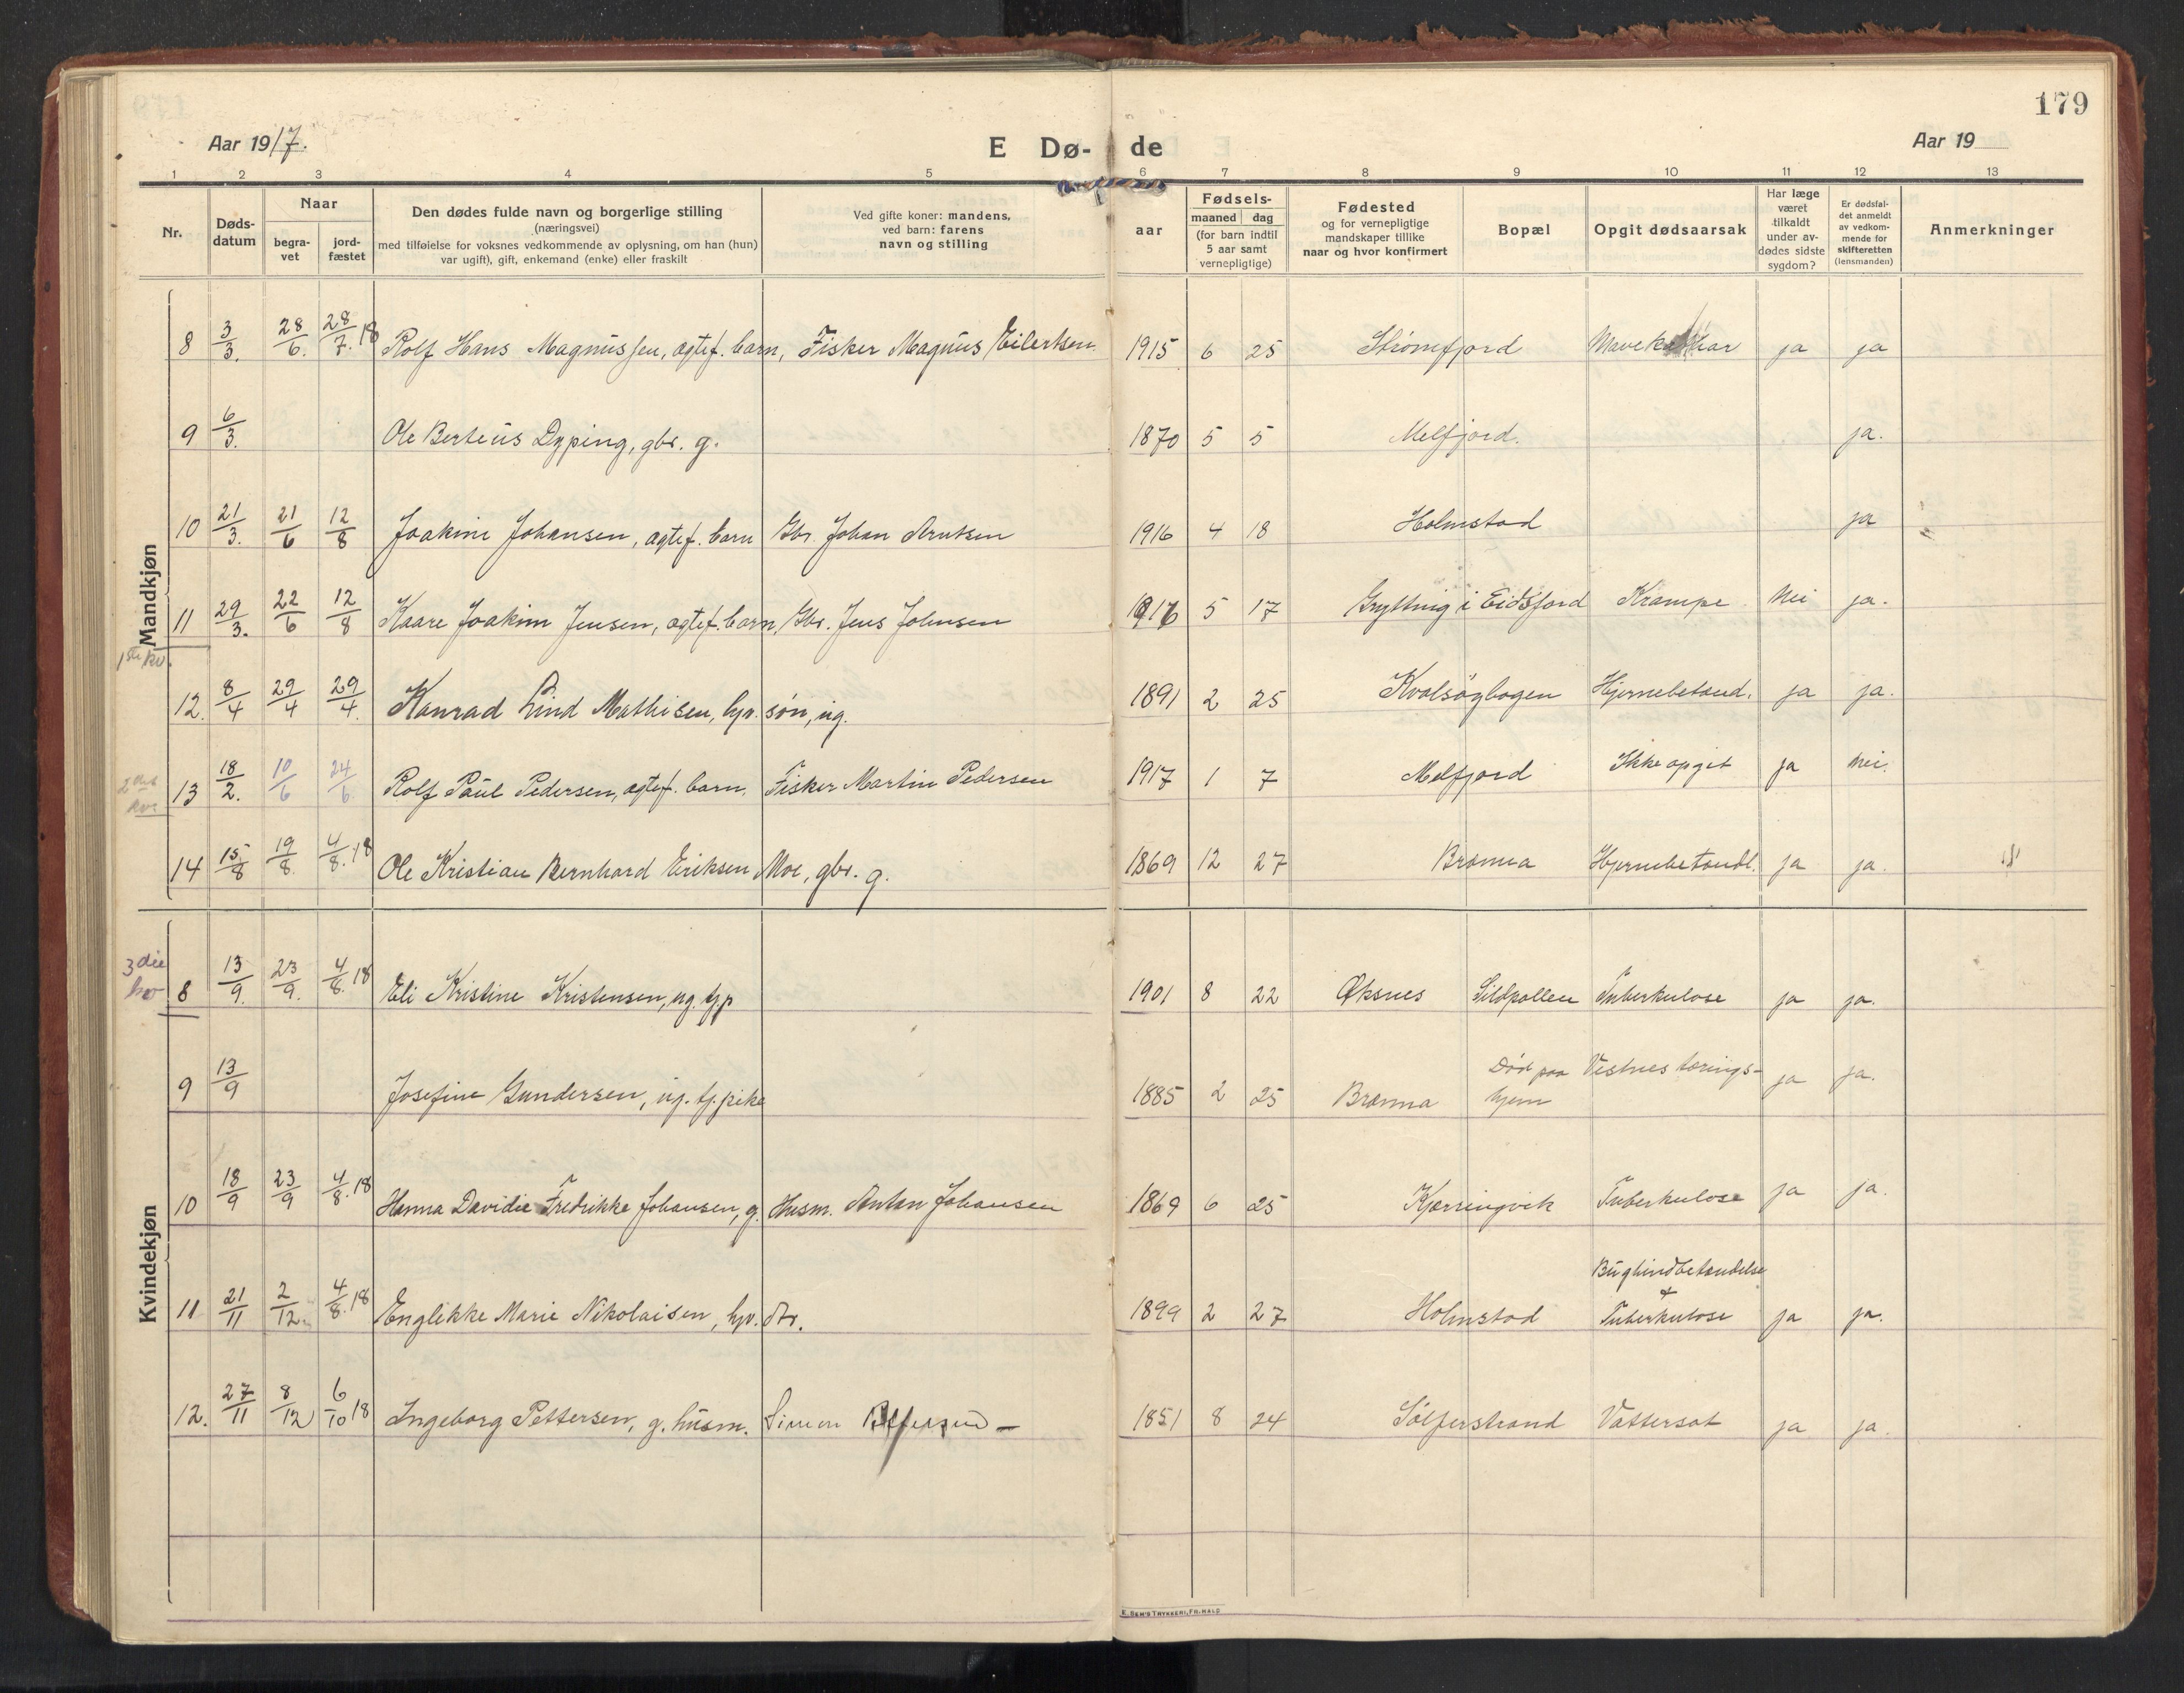 179
Aar 1917.
E Dø- de
Aar 19
1 2 3 4 5 6 7 8 9 10 11 12 13
Nr.
Døds-
datum
Naar
begra-
vet
jord-
fæstet
Den dødes fulde navn og borgerlige stilling
(næringsvei)
med tilføielse for voksnes vedkommende av oplysning, om han (hun)
var ugift), gift, enkemand (enke) eller fraskilt
Ved gifte koner: mandens,
ved barn: farens
navn og stilling
aar
Fødsels-
maaned dag
(for barn indtil
5 aar samt
vernepligtige)
Fødested
og for vernepligtige
mandskaper tillike
naar og hvor konfirmert
Bopæl
Opgit dødsaarsak
Har læge
været
tilkaldt
under av-
dødes sidste
sygdom?
Er dødsfal-
det anmeldt
av vedkom-
mende for
skifteretten
(lensmanden)
Anmerkninger
Mandkjøn
8 3/3. 28/6. 28/7.18 Rolf Hans Magnussen, ægtef. barn, Fisker Magnus Eilertsen 1915 6 25 Strømfjord ja ja
9 6/3. Ole Berteus Dyping, gbr. g. 1870 5 5 Melfjord. ja.
10 21/3. 21/6 12/8 Joakim Johansen, ægtef. barn Gbr. Johan Arntsen 1916 4 18 Holmstad ja
11 29/3. 22/6 12/8 Kaare Joakim Jensen, ægtef. barn, Gbr. Jens Johnsen 1916 5 17 Grytting i Eidsfjord Krampe Nei ja.
1ste kv.
12. 8/4 29/4 29/4. Konrad Lind Mathisen, hjv. søn, ug. 1891 2 25 Hjernebetænd. ja ja.
2det kv.
13 18/2. 10/6 24/6. Rolf Paul Pedersen, ægtef. barn. Fisker Martin Pedersen 1917 1 7 Melfjord Ikke opgit ja nei.
14 15/8 19/8. 4/8.18 Ole Kristian Bernhard Eriksen Moe, gbr. g. 1869 12 27 Brænna Hjernebetændl. ja ja.
Kvindekjøn
3die kv
8 13/9. 23/9. 4/8.18 Eli Kristine Kristensen, ug. tjp 1901 8 22 Øksnes Sildpollen Tuberkulose ja ja.
9 13/9 Josefine Gundersen, ug. tj. pike 1885 2 25 Brænna Død paa Vestnes tærings-
hjem ja ja.
10 18/9 23/9 4/8.18 Hanna Davidie Fredrikke Johansen, g. Husm. Anton Johansen 1869 6 25 Kjærringvik Tuberkulose ja ja.
11 21/11 2/12. 4/8.18 Englikke Marie Nikolaisen, hjv. dtr. 1899 2 27 Holmstad Bughindbetændelse
& Tuberkulose ja ja.
12. 27/11 8/12 6/10 18 Ingeborg Pettersen, g. husm. Simon Pettersen – 1851 8 24 Sølferstrand Vattersot ja ja.
E. SEM'S TRYKKERI, FR.HALD